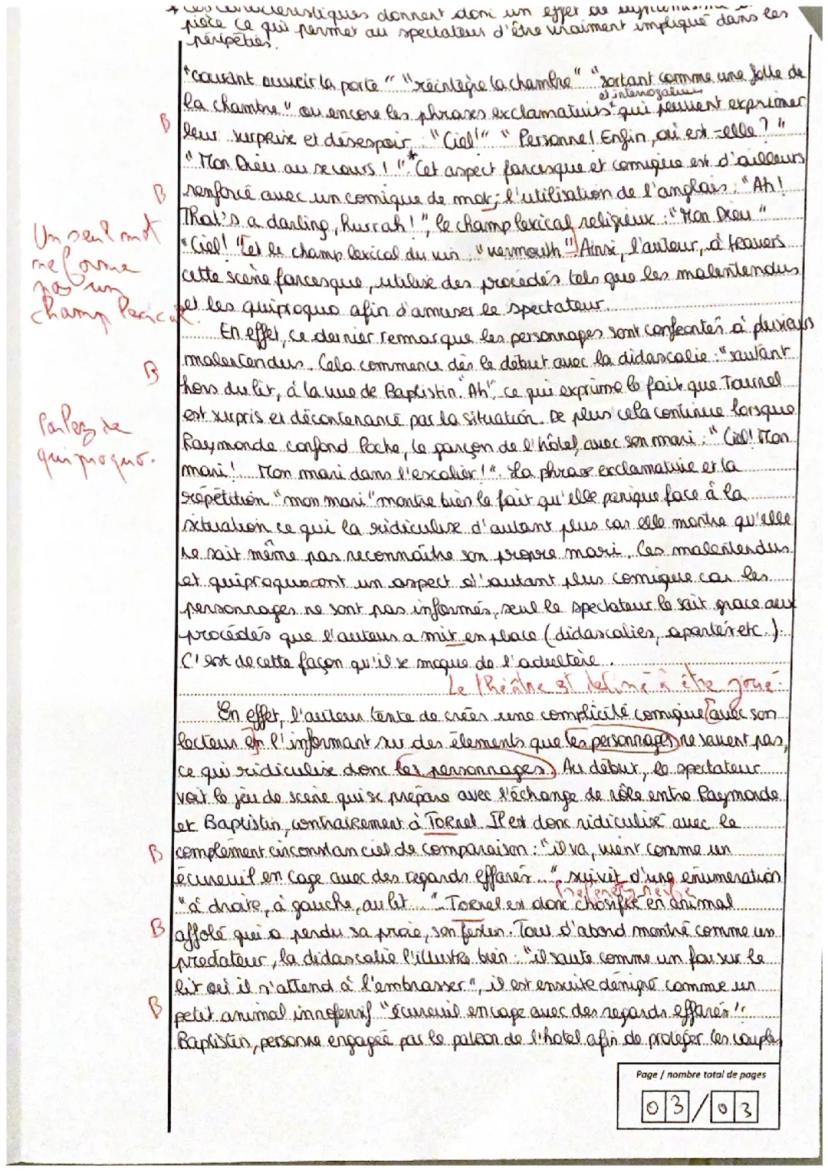 * Ces caractéristiques donnent donc un effet de
pièce ce qui permet au spectateur d'être vraiment impliqué dans les
péripéties.
"courant ouvrir la porte" "réintègre la chambre" "sortant comme une folle de
et interrogatives
la chambre" ou encore les phrases exclamatives qui peuvent exprimer
B
leur surprise et désespoir. "Ciel!" "Personne! Enfin, où est-elle?"
"Mon Dieu au secours!".* Cet aspect farcesque et comique est d'ailleurs
B
renforcé avec un comique de mot; l'utilisation de l'anglais: "Ah!
That's a darling, hurrah!", le champ lexical religieux: "Mon Dieu"
Un seul mot
ne forme
pas un
champ lexical.
"Ciel!" [et le champ lexical du vin: "vermouth"] Ainsi, l'auteur, à travers
cette scène farcesque, utilise des procédés tels que les malentendus
et les quiproquo afin d'amuser le spectateur.
En effet, ce dernier remarque les personnages sont confrontés à plusieurs
B
malentendus. Cela commence dès le début avec la didascalie: "sautant
hors du lit, à la vue de Baptistin. "Ah", ce qui exprime le fait que Tournel
Parlez de
quiproquo.
est surpris et décontenancé par la situation. De plus cela continue lorsque
Raymonde confond Poche, le garçon de l'hôtel, avec son mari: "Ciel! Mon
mari! Mon mari dans l'escalier!". La phrase exclamative et la
répétition "mon mari" montre bien le fait qu'elle panique face à la
situation ce qui la ridiculise d'autant plus car elle montre qu'elle
ne sait même pas reconnaître son propre mari. Ces malentendus
et quiproquo ont un aspect d'autant plus comique car les
personnages ne sont pas informés, seul le spectateur le sait grace aux
procédés que l'auteur a mit en place (didascalies, apartés etc.).
C'est de cette façon qu'il se moque de l'adultère.
Le théâtre est destiné à être joué.
En effet, l'auteur tente de créer une complicité comique [avec son
lecteur en] l'informant sur des élements que les personnages ne savent pas,
ce qui ridiculise donc les personnages. Au début, le spectateur
voit le jeu de scène qui se prépare avec l'échange de rôle entre Raymonde
et Baptistin, contrairement à Tornel. Il est donc ridiculisé avec le
B
complément circonstanciel de comparaison: "il va, vient comme un
écureuil en cage avec des regards effarés..." suivit d'une énumération
"à droite, à gauche, au lit...". Tornel est donc chosifié en animal
B
affolé qui a perdu sa proie, son festin. Tout d'abord montré comme un
prédateur, la didascalie l'illustre bien: "il saute comme un fou sur le
lit où il s'attend à l'embrasser", il est ensuite dénigré comme un
B
petit animal innofensif "écureuil en cage avec des regards effarés".
Baptistin, personne engagée par le patron de l'hotel afin de protéger les couples
Page / nombre total de pages
03/03